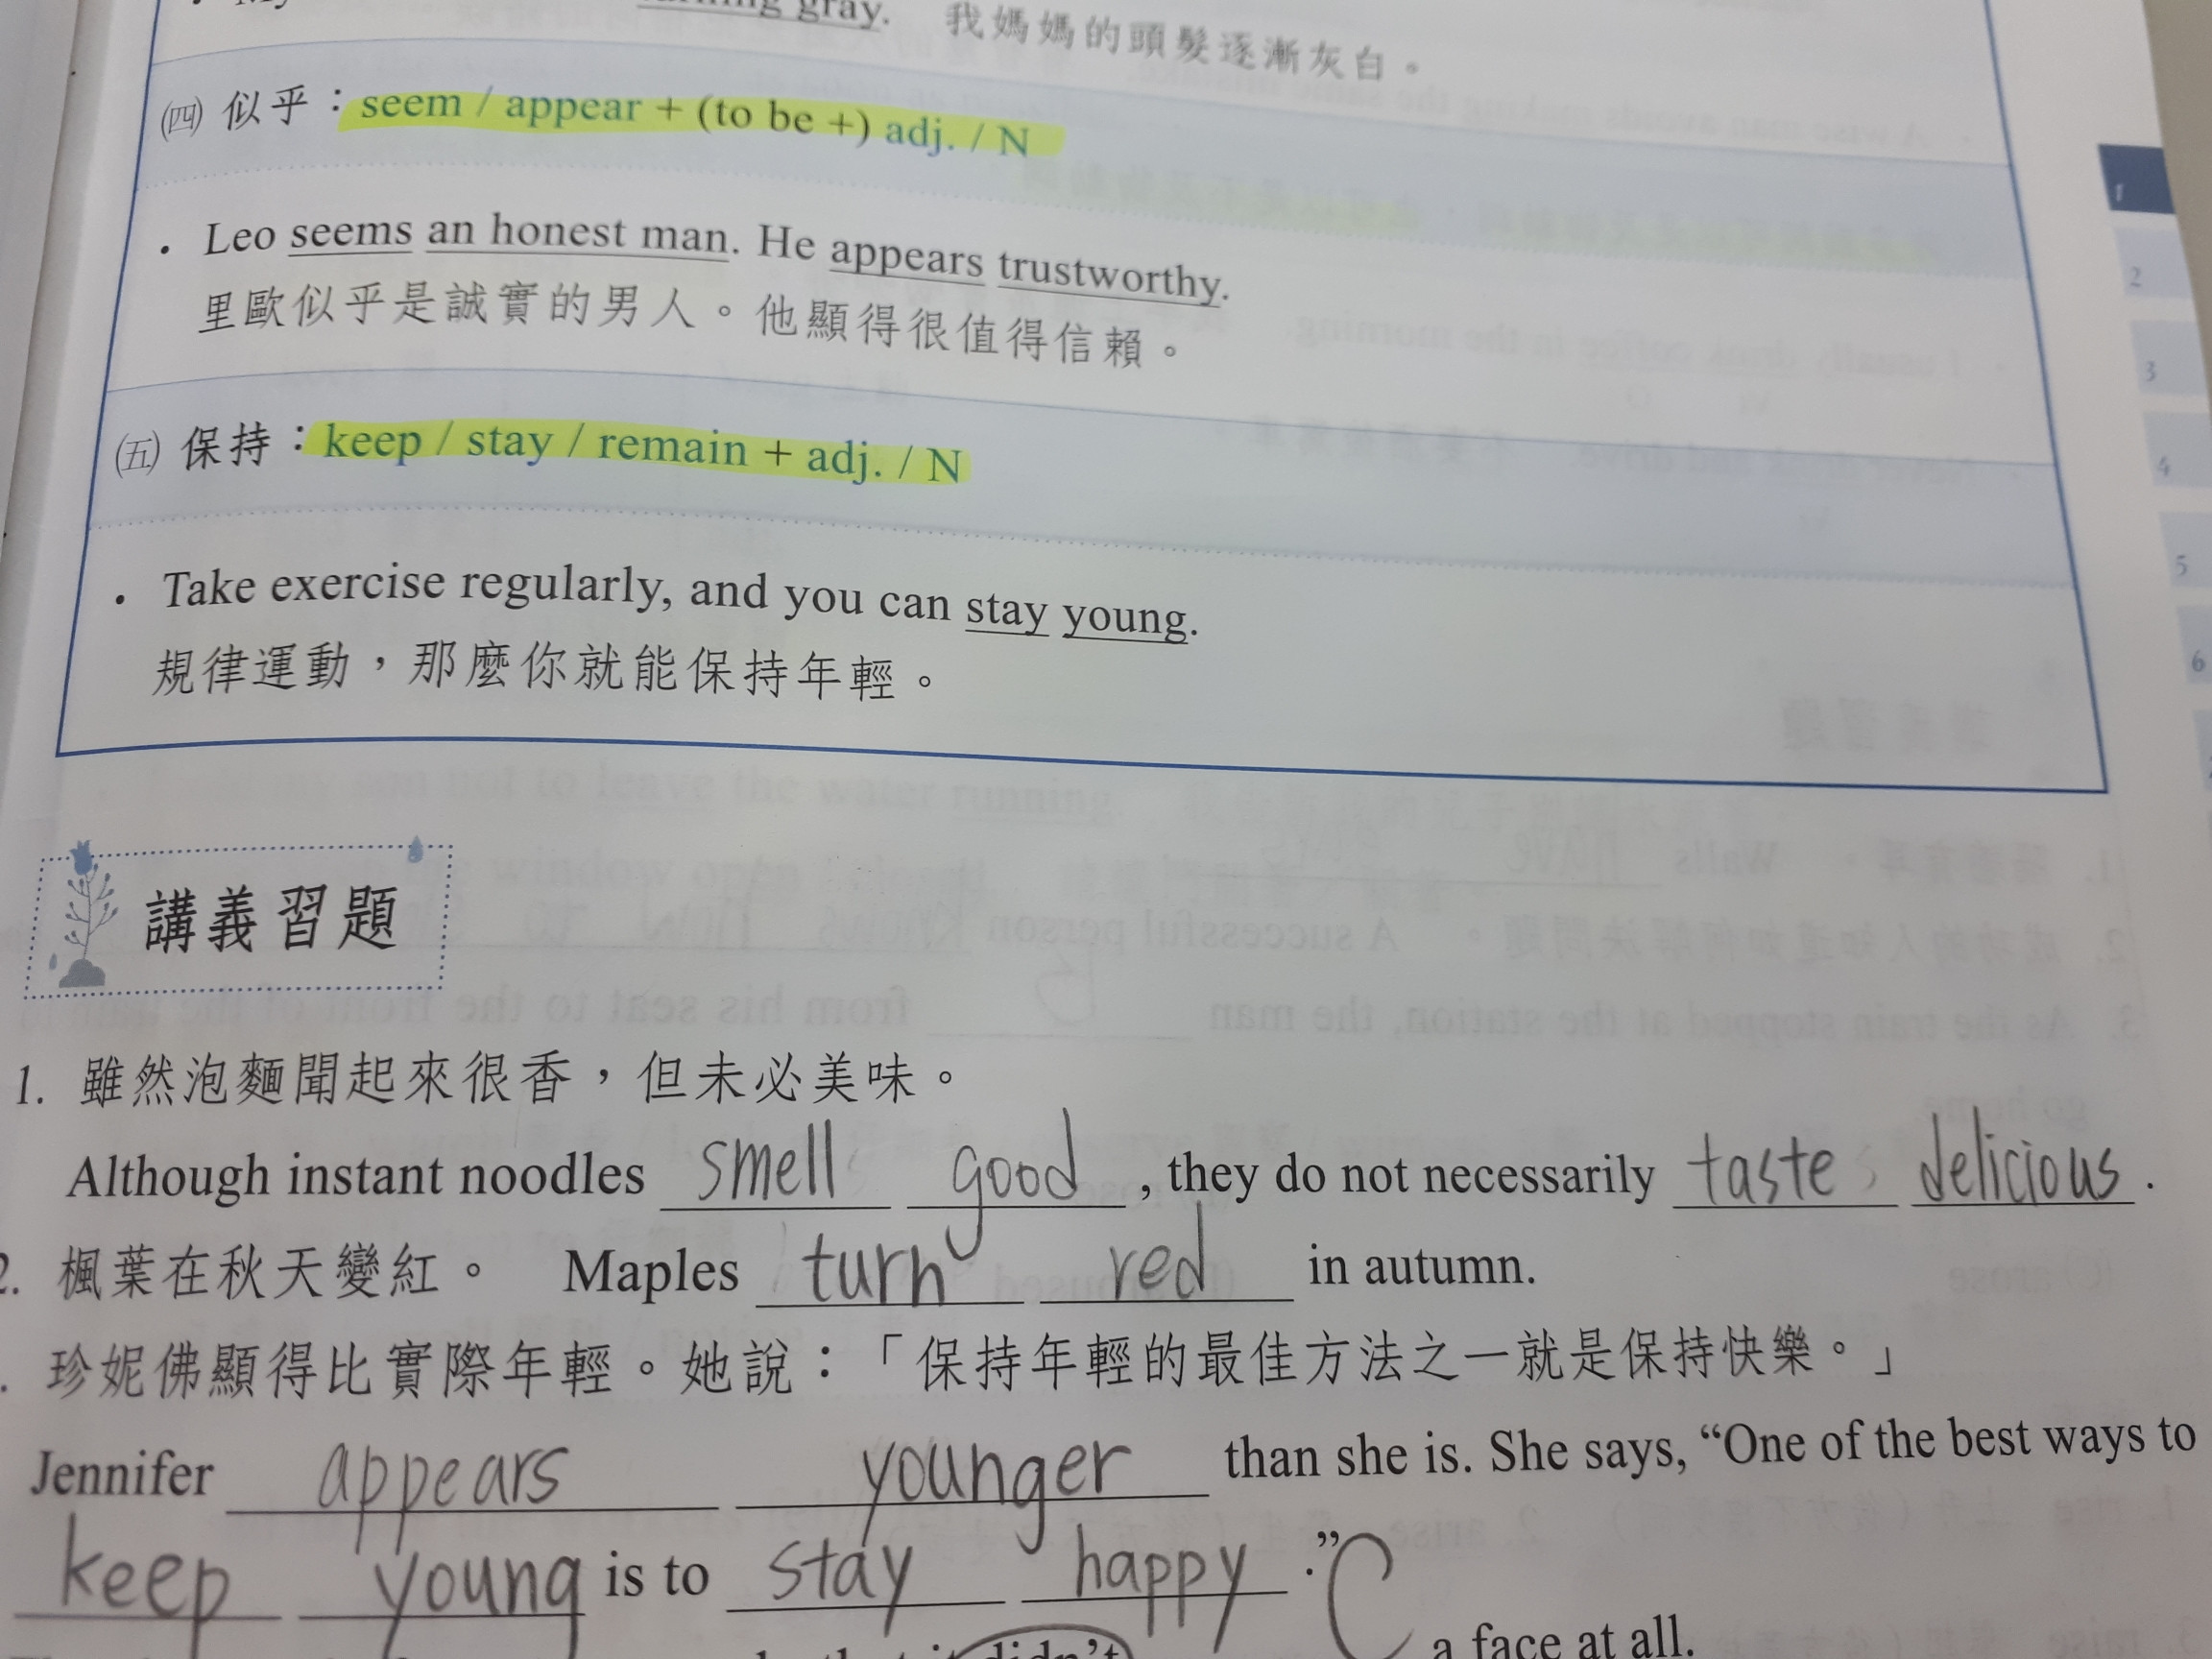 gray. 我媽媽的頭髮逐漸灰白。
㈣ 似乎：seem / appear + (to be +) adj. / N
• Leo seems an honest man. He appears trustworthy.
里歐似乎是誠實的男人。他顯得很值得信賴。
㈤ 保持：keep / stay / remain + adj. / N
• Take exercise regularly, and you can stay young.
規律運動，那麼你就能保持年輕。
講義習題
1. 雖然泡麵聞起來很香，但未必美味。
Although instant noodles smell good, they do not necessarily taste delicious.
2. 楓葉在秋天變紅。 Maples turn red in autumn.
珍妮佛顯得比實際年輕。她說：「保持年輕的最佳方法之一就是保持快樂。」
Jennifer appears younger than she is. She says, “One of the best ways to
keep young is to stay happy.”
didn't C a face at all.
1
2
3
4
5
6